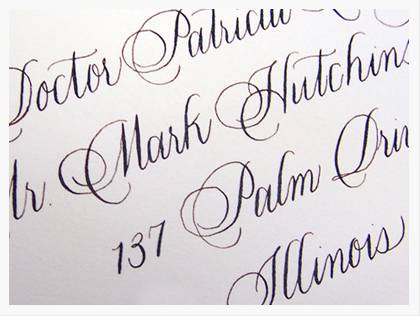 Doctor Patricia
Mr. Mark Hutchins
137 Palm Driv
Illinois